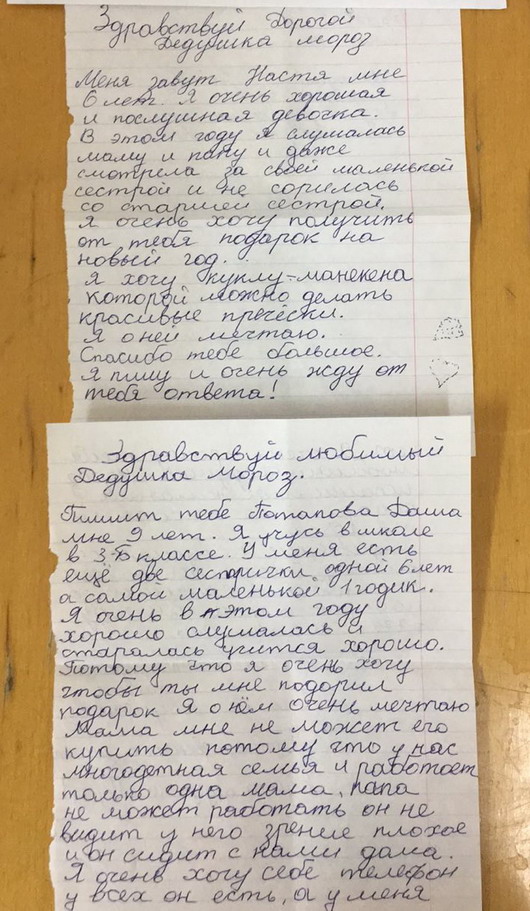 Здравствуй Дорогой
Дедушка мороз
Меня завут Настя мне
6 лет. Я очень хорошая
и послушная девочка.
В этом году я слушалась
маму и папу и даже
смотрела за своей маленькой
сестрой и не сорилась
со старшей сестрой.
Я очень хочу получить
от тебя подарок на
новый год.
Я хочу куклу-манекена
которой можно делать
красивые прически.
Я о ней мечтаю.
Спасибо тебе большое.
Я пишу и очень жду от
тебя ответа!
Здравствуй любимый
Дедушка Мороз.
Пишит тебе Потапова Даша
мне 9 лет. Я учусь в школе
в 3-Б классе. У меня есть
ещё две сестрички одной 6 лет
а самой маленькой 1 годик.
Я очень в этом году
хорошо слушалась и
старалась учится хорошо.
Потому что я очень хочу
чтобы ты мне подорил
подарок Я о нём очень мечтаю
Мама мне не может его
купить потому что у нас
многодетная семья и работает
только одна мама, папа
не может работать он не
видит у него зрение плохое
и он сидит с нами дома.
Я очень хочу себе телефон
у всех он есть, а у меня